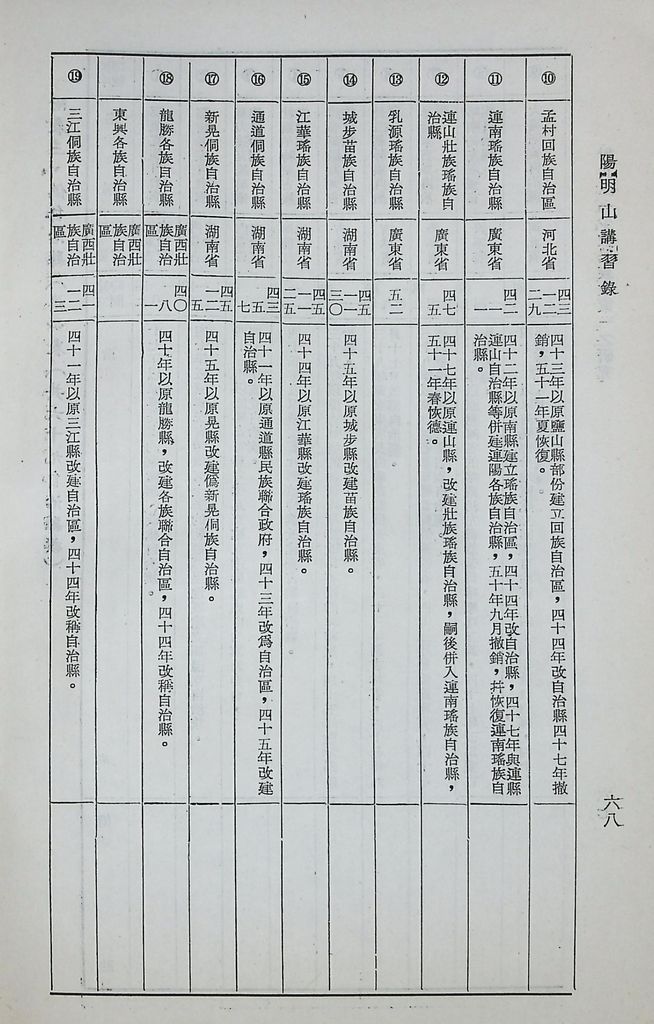 陽明山講習錄
六八
⑩
孟村回族自治區
河北省
四三
一二
二九
四十三年以原鹽山縣部份建立回族自治區，四十四年改自治縣四十七年撤
銷，五十一年夏恢復。
⑪
連南瑤族自治縣
廣東省
四二
一一
四十二年以原南縣建立瑤族自治區，四十四年改自治縣，四十七年與連縣
連山自治縣等併建連陽各族自治縣，五十年九月撤銷，幷恢復連南瑤族自
治縣。
⑫
連山壯族瑤族自
治縣
廣東省
四七
五
四十七年以原連山縣，改建壯族瑤族自治縣，嗣後併入連南瑤族自治縣，
五十一年春恢德。
⑬
乳源瑤族自治縣
廣東省
五二
⑭
城步苗族自治縣
湖南省
四五
一一
三〇
四十五年以原城步縣改建苗族自治縣。
⑮
江華瑤族自治縣
湖南省
四五
一一
二五
四十四年以原江華縣改建瑤族自治縣。
⑯
通道侗族自治縣
湖南省
四三
五
七
四十一年以原通道縣民族聯合政府，四十三年改爲自治區，四十五年改建
自治縣。
⑰
新晃侗族自治縣
湖南省
四五
一二
五
四十五年以原晃縣改建僞新晃侗族自治縣。
⑱
龍勝各族自治縣
廣西壯
族自治
區
四〇
八
一
四十年以原龍勝縣，改建各族聯合自治區，四十四年改稱自治縣。
東興各族自治縣
廣西壯
族自治
區
⑲
三江侗族自治縣
廣西壯
族自治
區
四一
一二
三
四十一年以原三江縣改建自治區，四十四年改稱自治縣。